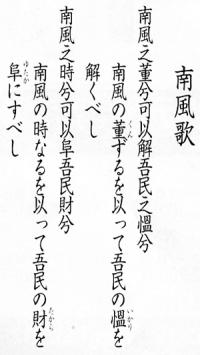 南風歌
南風之董兮可以解吾民之慍兮
南風の董ずるを以って吾民の慍を
解くべし
南風之時兮可以阜吾民財兮
南風の時なるを以って吾民の財を
阜にすべし
くん
いかり
たから
ゆたか